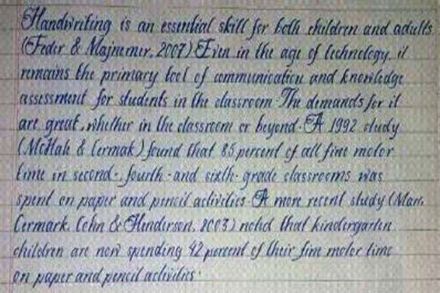 Handwriting is an essential skill for both children and adults
(Feder & Majnemer, 2007) Even in the age of technology, it
remains the primary tool of communication and knowledge
assessment for students in the classroom. The demands for it
are great, whether in the classroom or beyond. A 1992 study
(McHale & Cermak) found that 85 percent of all fine motor
time in second-, fourth- and sixth-grade classrooms was
spent on paper and pencil activities. A more recent study (Marr,
Cermark, Cohn & Henderson, 2003) noted that kindergarten
children are now spending 42 percent of their fine motor time
on paper and pencil activities.